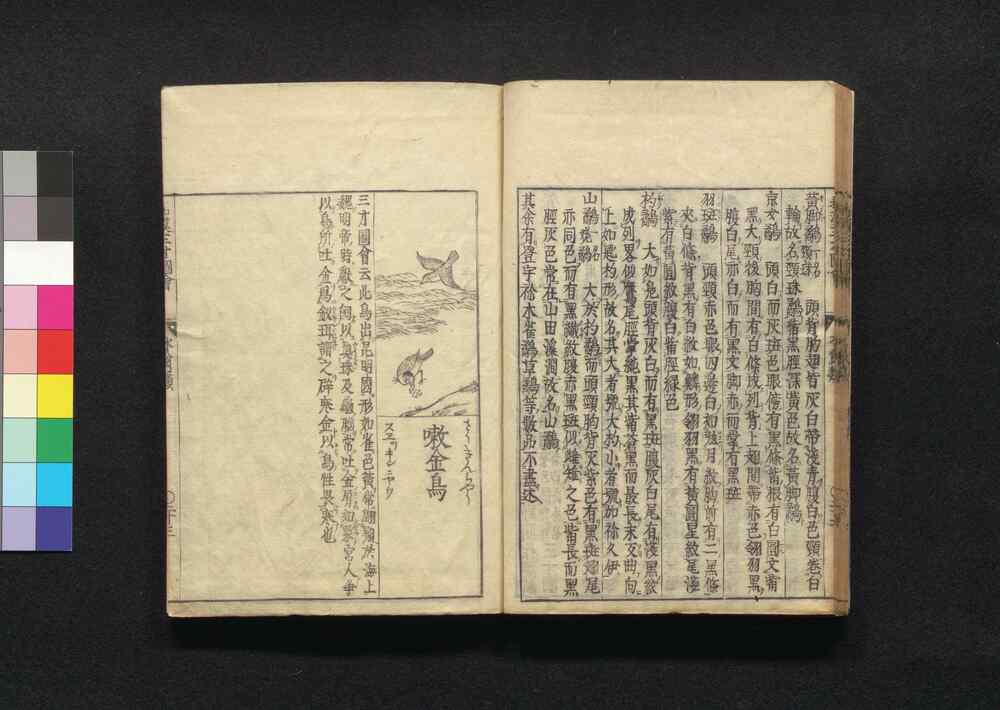 黃脚鷸 一名頸珠 頭背胸翅皆灰白帶淺青腹白色頸卷白
輪故名頸珠鷸觜黑脛深黃色故名黃脚鷸
京女鷸 頭白而灰斑色眼傍有黑條觜根有白圓文觜
黑大頸後胸間有白條成列背上翅間帶赤色翎羽黑
腹白尾亦白而有黑文脚赤而掌有黑斑
羽斑鷸 頭頸赤色眼四邊白如弦月紋胸前有二黑條
夾白條背黑有白紋如鱗形翎羽黑有黃圓星紋尾淺
紫有黃圓紋腹白觜脛綠色
杓鷸 大如鳧頭背灰白而有黑斑腹灰白尾有淺黑紋
成列畧似鷹尾脛掌純黑其觜蒼黑而最長末反曲向
上如匙杓形故名其大者號大杓小者號加祢久伊
山鷸 一名姥鷸 大於杓鷸而頭頸胸背灰紫色有黑斑翅尾
亦同色而有黑纖紋腹赤黑斑似雉雌之色觜長而黑
脛灰色常在山田溪澗故名山鷸
其余有登宇祢水雀鷸草鷸等數品不盡述
嗽金鳥
三才圖會云此鳥出昆明國形如雀色黃常翺翔於海上
魏明帝時獻之飼以真珠及龜腦常吐金屑如粟宮人爭
以鳥所吐金爲釵珥謂之辟寒金以鳥性畏寒也